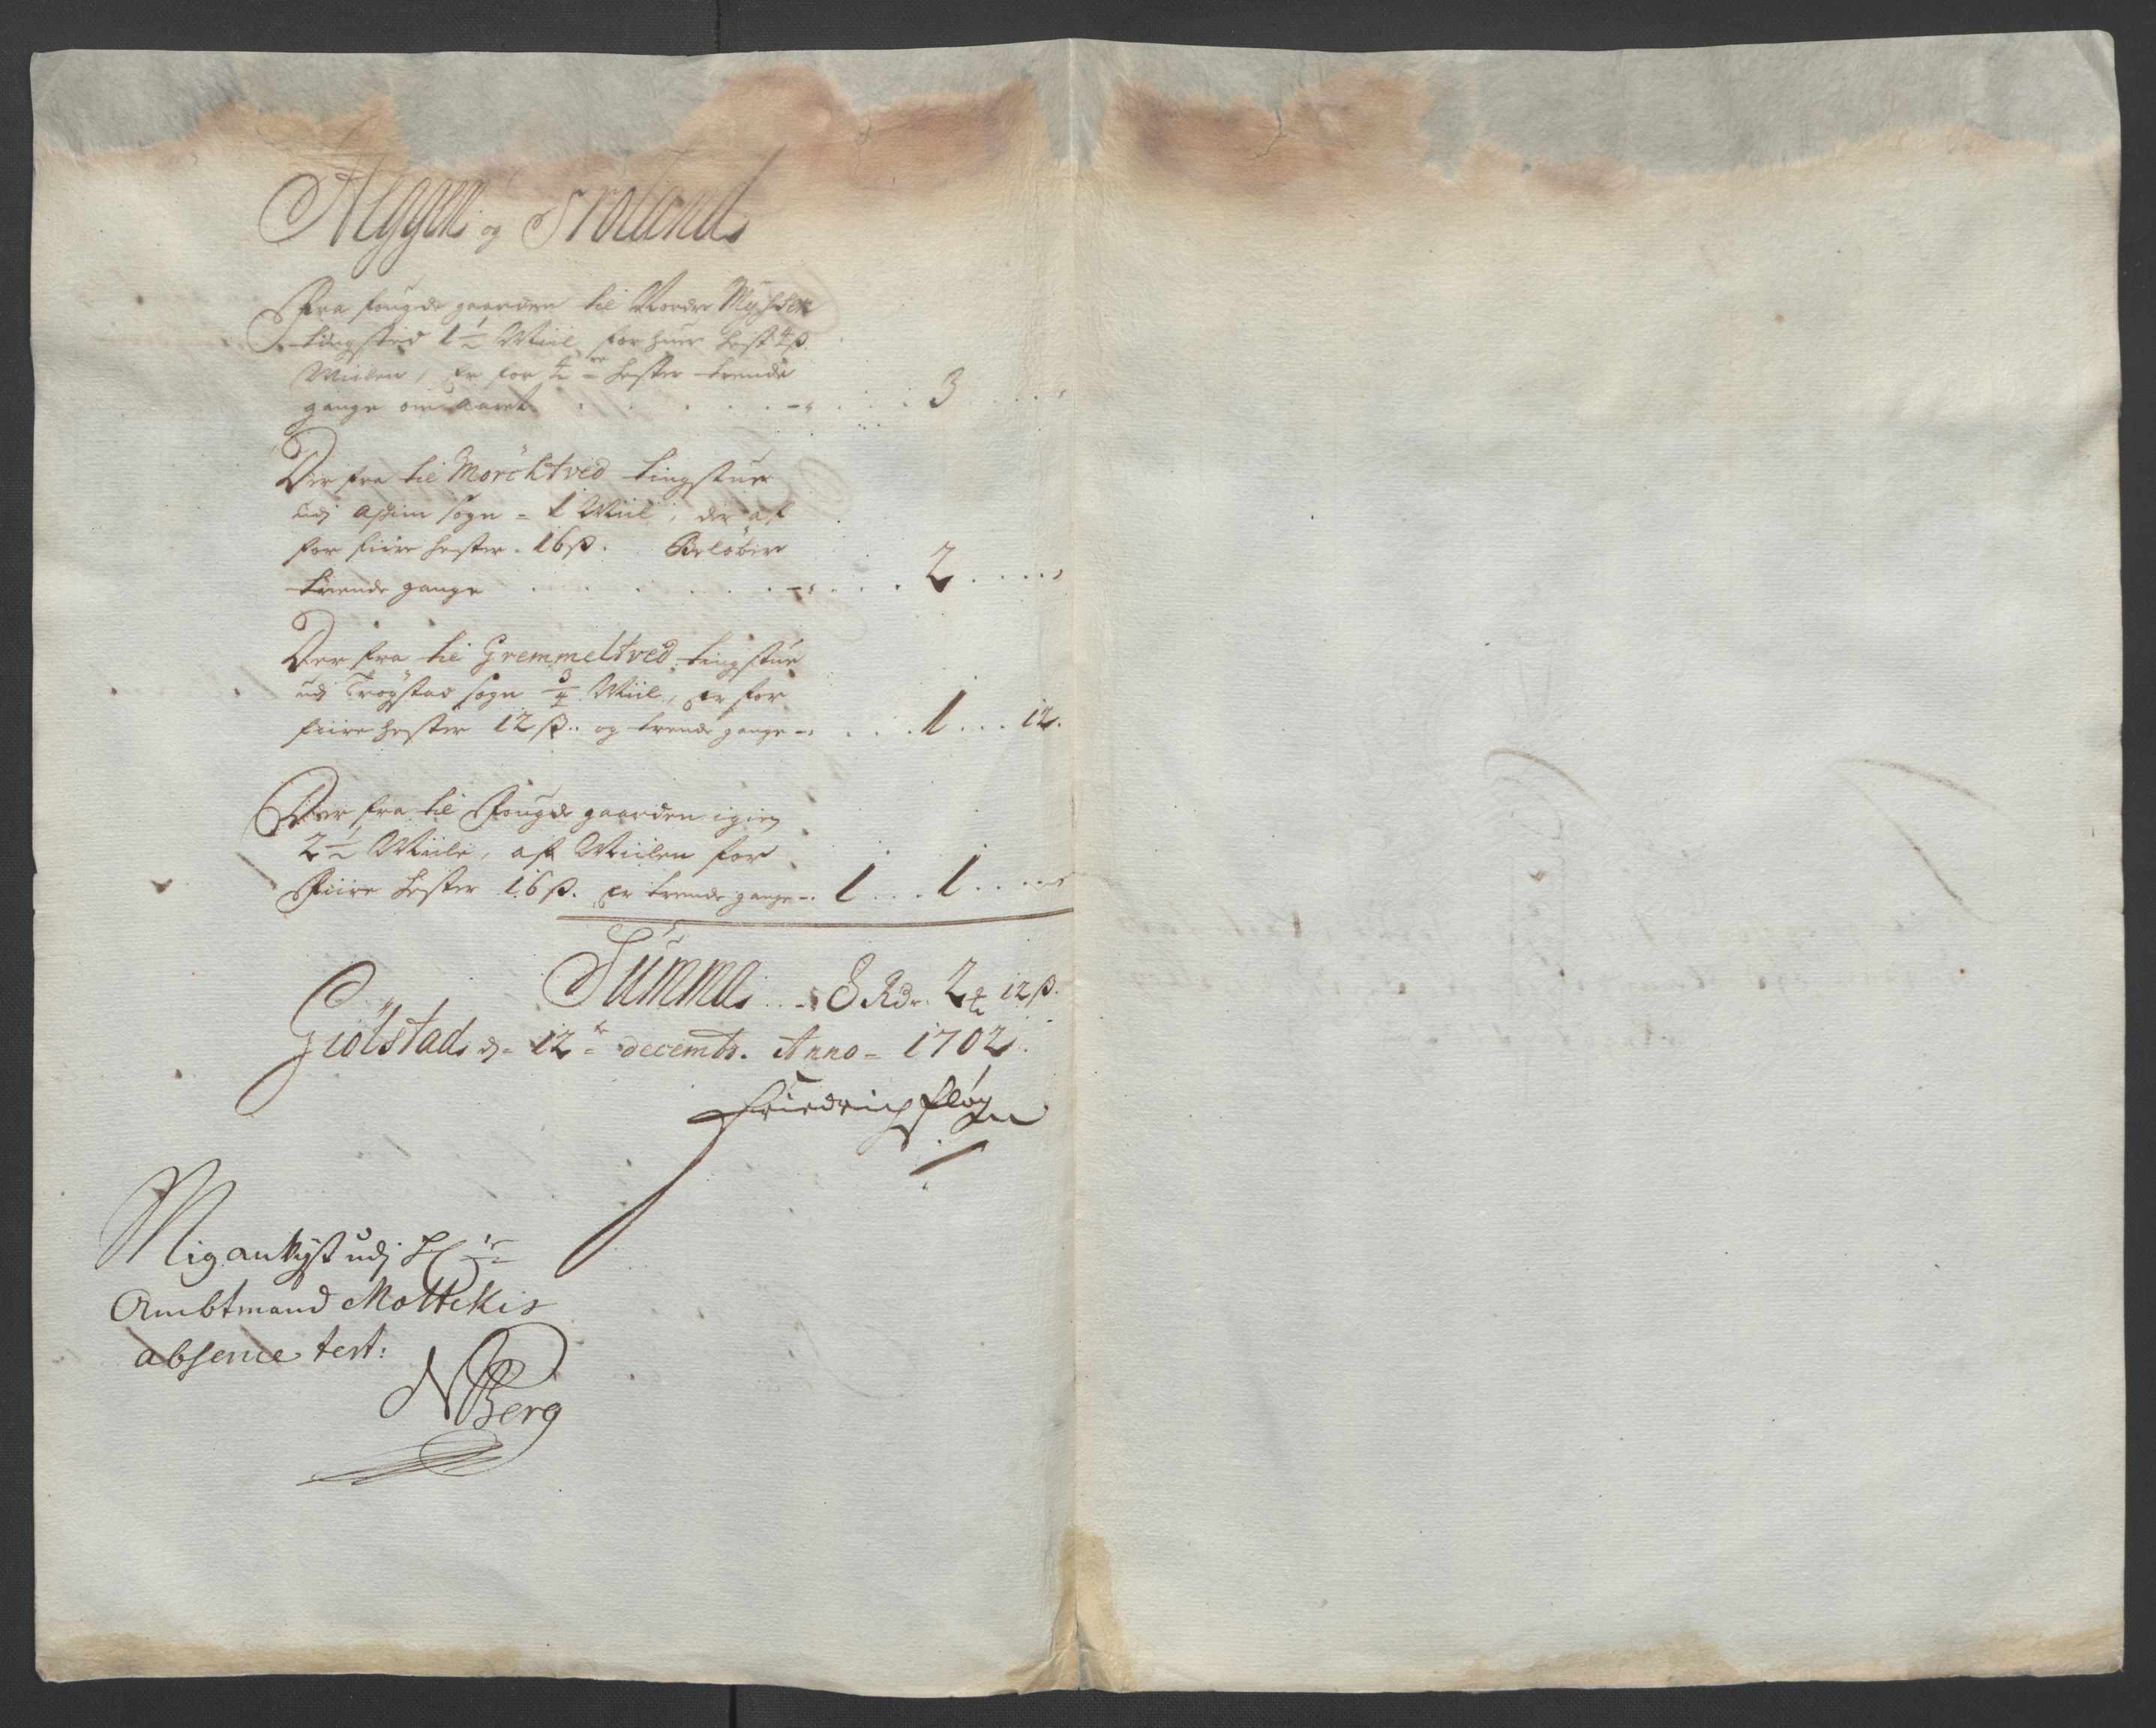 Heggen og Frøland
Fra fougde gaarden til Nordre Mÿhsen
tingsted 1½ Miil, for huer Hest 4 ß.
Miilen, Er for 4re hester trende
gange om aaret 3
Der fra til Morchtved tingstue
udj Aschim sogn - 1 Miil, der af
for fiire hester 16 ß. Beløber
trende gange 2
Der fra til Gremmeltved tingstue
udj Trøgstad sogn ¾ Miil, er for
fiire hester 12 ß. og trende gange 1 12.
Der fra til Fougde gaarden igien
2½ Miile, af Miilen for
Fiire Hester 16 ß. er trende gange 1 1
Summa 8 Rdr. 2 12 ß.
Giölstad d. 12te decembr. Anno 1702
Friedrich
Mig anvÿst udj
Ambtmand
absence test:
NBerg